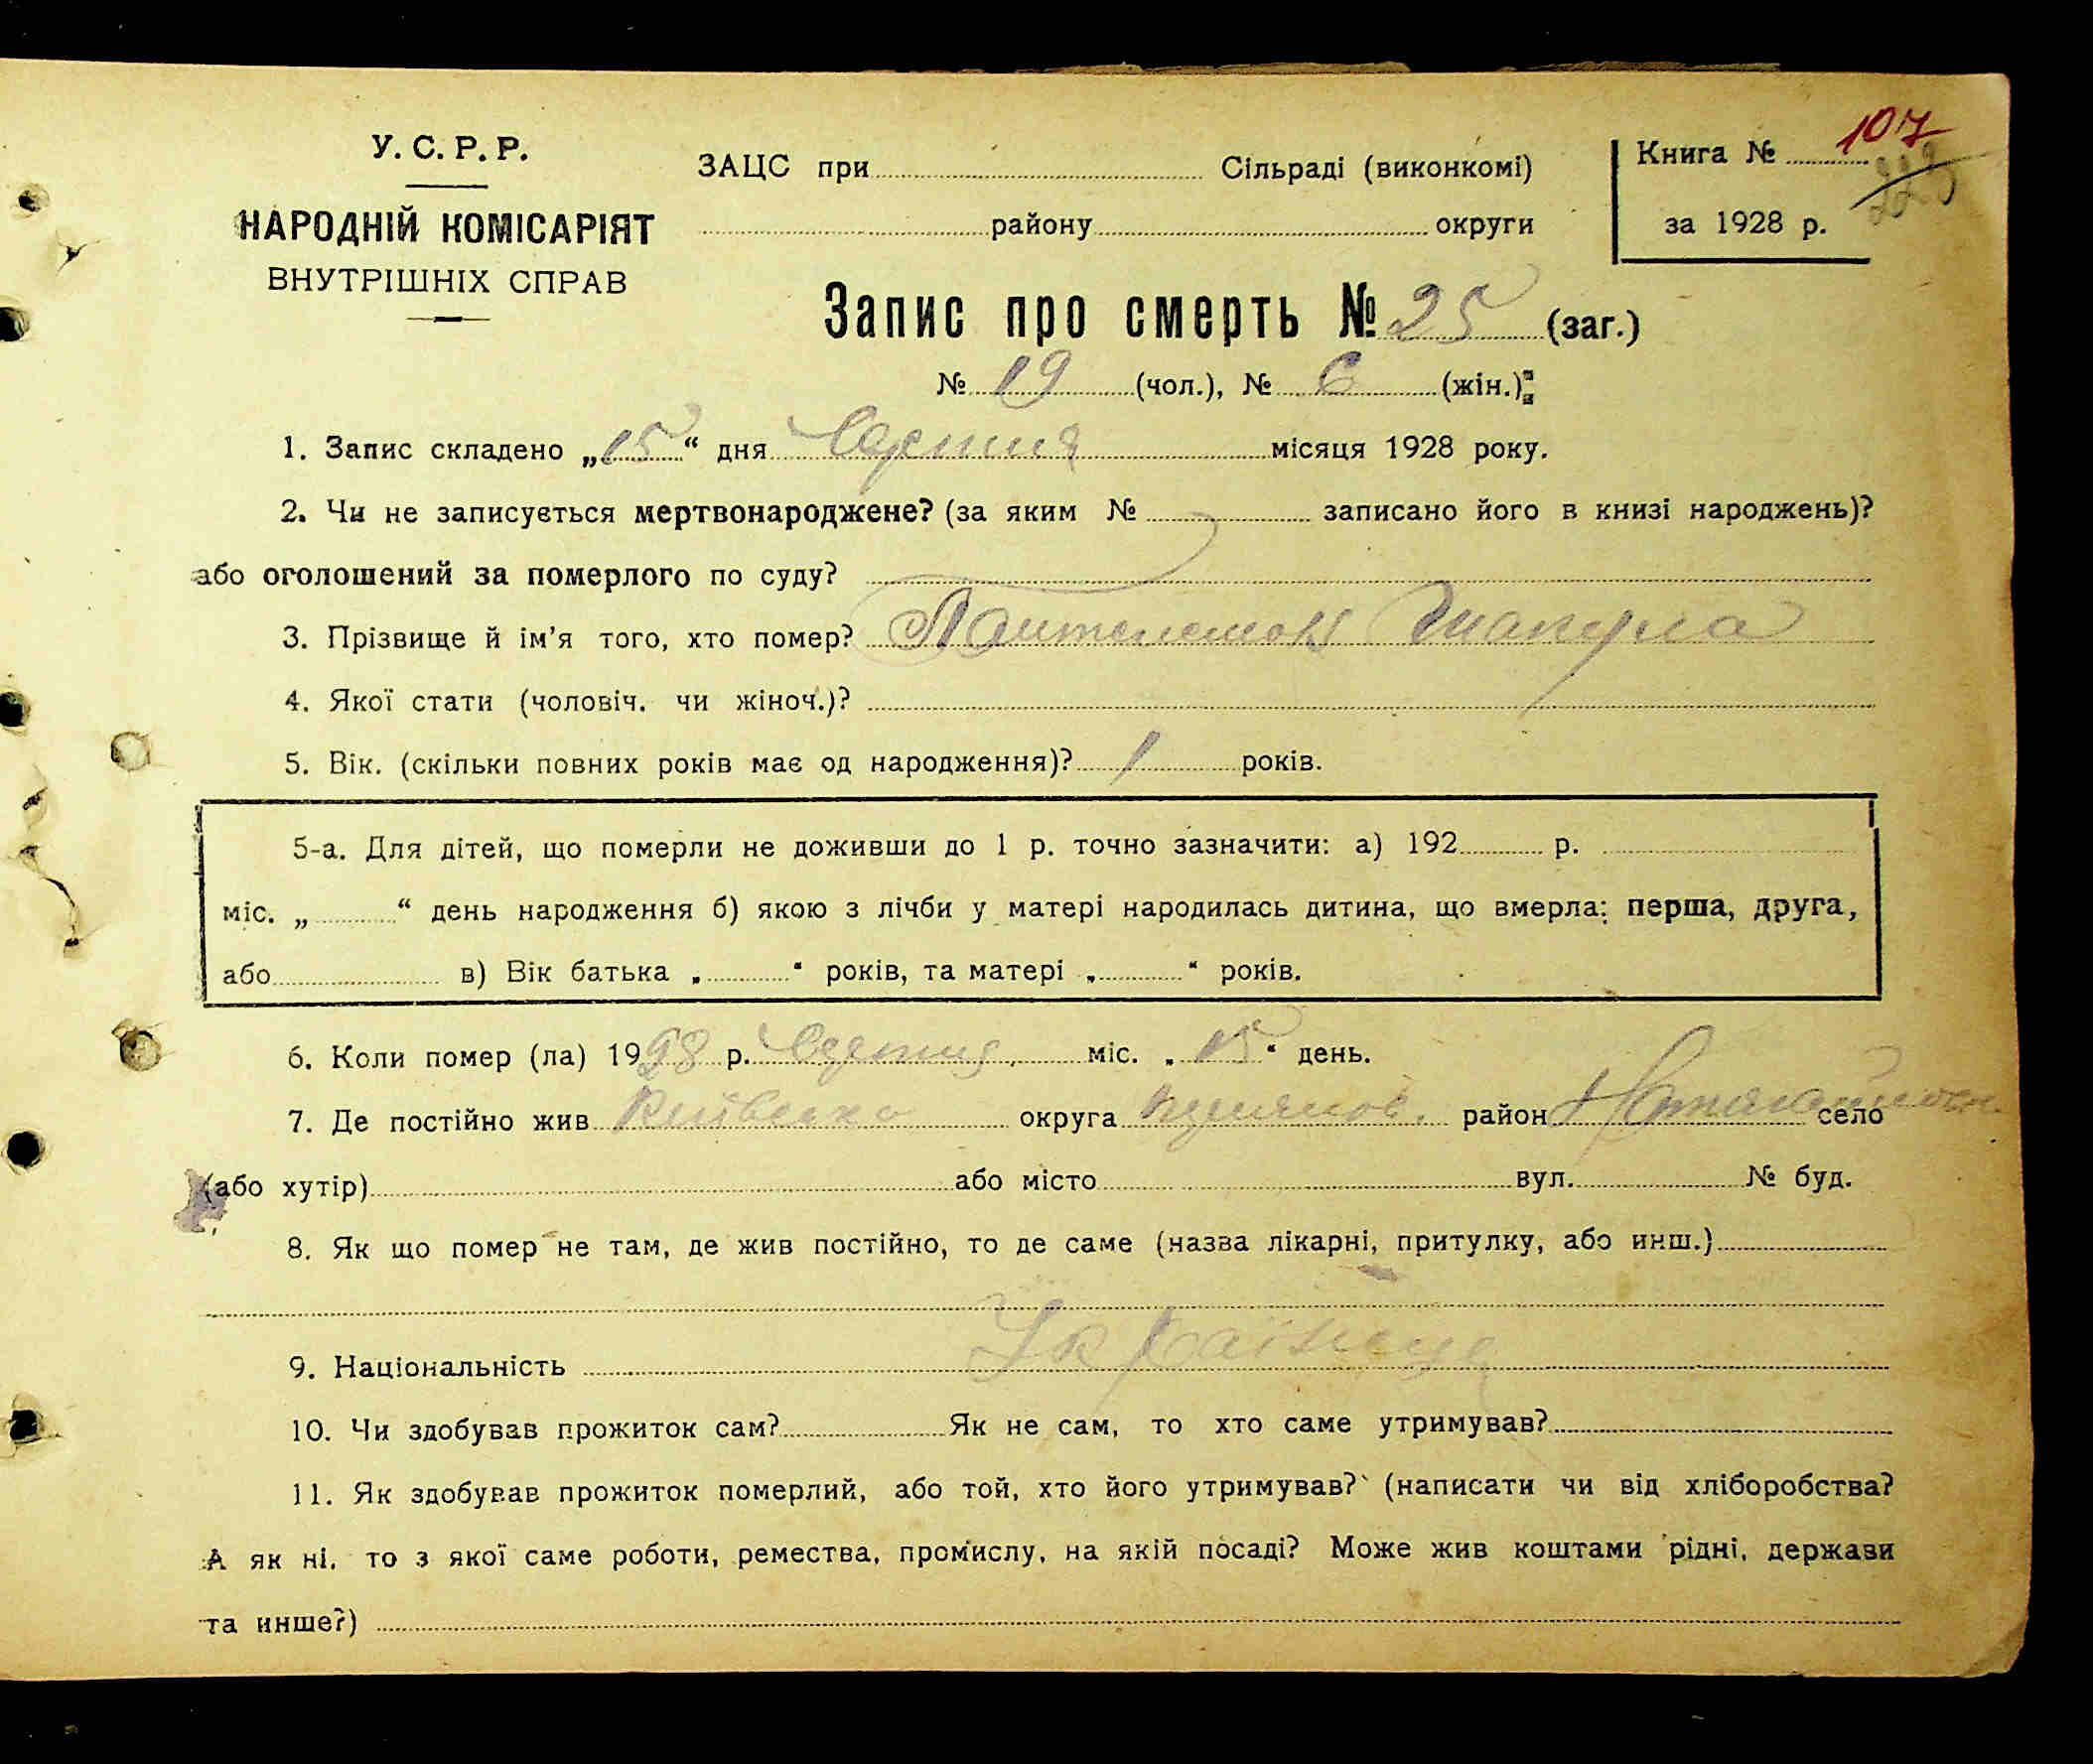 У. С. Р. Р.
НАРОДНІЙ КОМІСАРІЯТ
ВНУТРІШНІХ СПРАВ
ЗАЦС при Сільраді (виконкомі)
району округи
Книга № 107
223
за 1928 р.
Запис про смерть № 25 (заг.)
№ 19 (чол.), № 6 (жін.)
1. Запис складено „15“ дня Серпня місяця 1928 року.
2. Чи не записується мертвонароджене? (за яким № записано його в книзі народжень)?
або оголошений за померлого по суду?
3. Прізвище й ім’я того, хто помер? Пантелемон
4. Якої стати (чоловіч. чи жіноч.)?
5. Вік. (скільки повних років має од народження)? 1 років.
5-а. Для дітей, що померли не доживши до 1 р. точно зазначити: а) 192 р.
міс. „ “ день народження б) якою з лічби у матері народилась дитина, що вмерла: перша, друга,
або в) Вік батька „ “ років, та матері „ “ років.
6. Коли помер (ла) 1928 р. Серпня міс. „15“ день.
7. Де постійно жив Київська округа район село
(або хутір) або місто вул. № буд.
8. Як що помер не там, де жив постійно, то де саме (назва лікарні, притулку, або инш.)
9. Національність Українець
10. Чи здобував прожиток сам? Як не сам, то хто саме утримував?
11. Як здобував прожиток померлий, або той, хто його утримував? (написати чи від хліборобства?
А як ні, то з якої саме роботи, ремества, промислу, на якій посаді? Може жив коштами рідні, держави
та инше?)